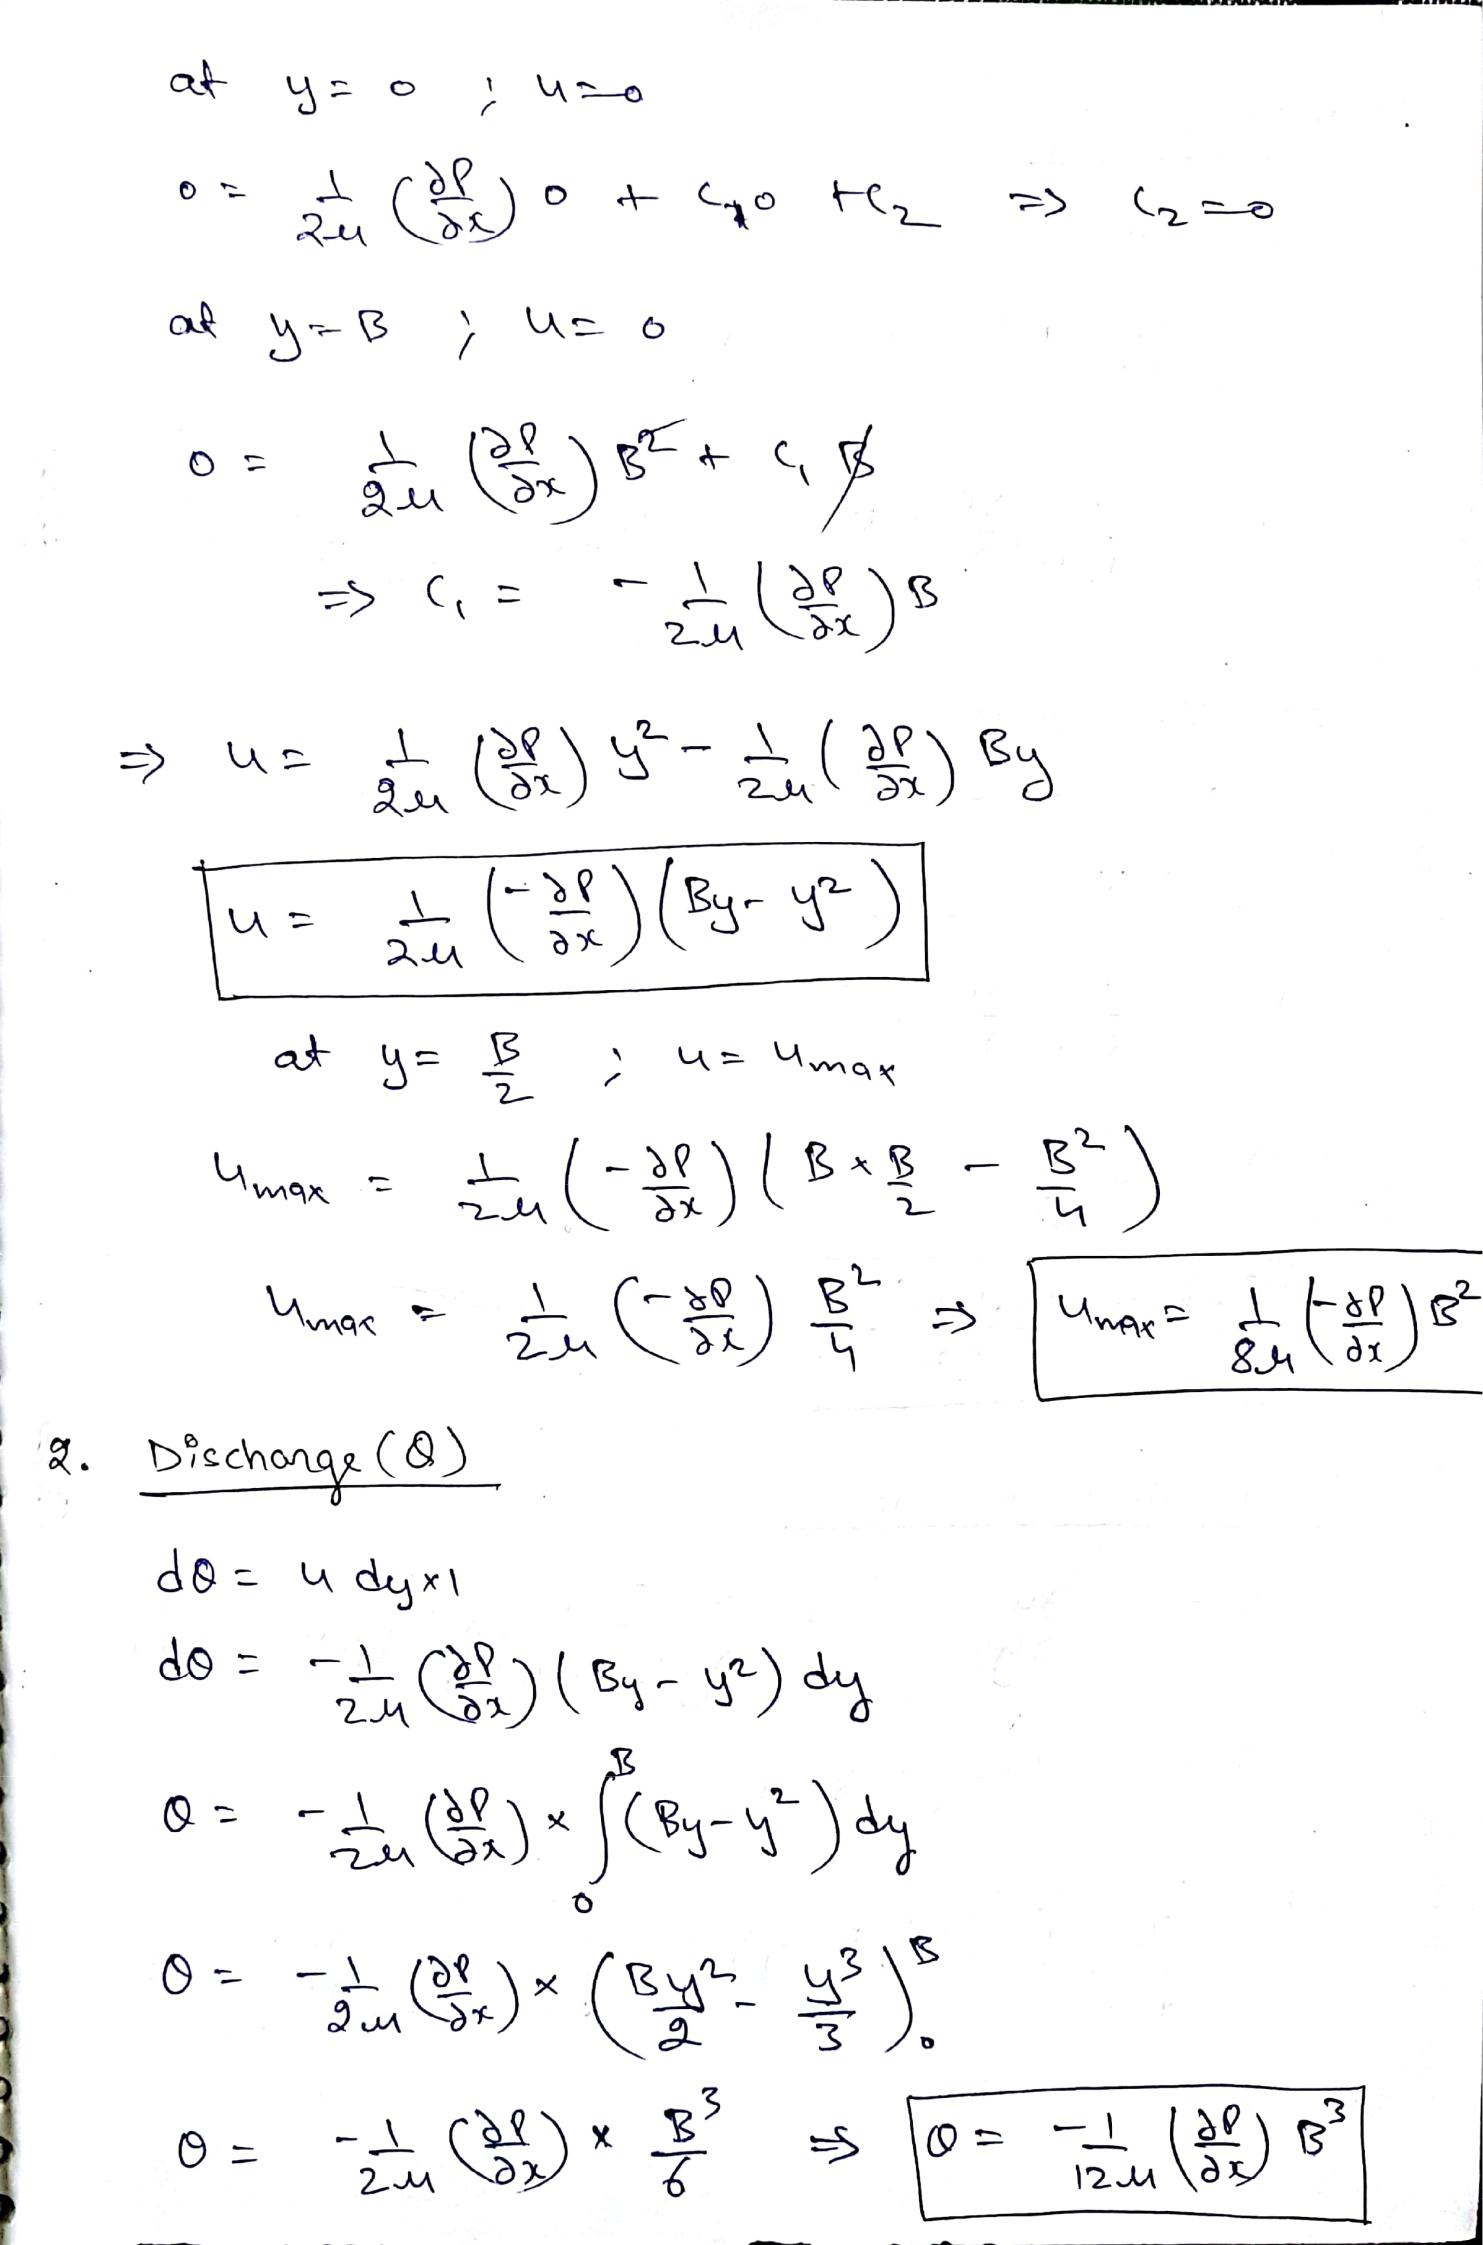 at y = 0 ; u = 0
0 = 1/2μ (∂P/∂x) 0 + C₁×0 + C₂ ⇒ C₂ = 0
at y = B ; u = 0
0 = 1/2μ (∂P/∂x) B² + C₁ B
⇒ C₁ = - 1/2μ (∂P/∂x) B
⇒ u = 1/2μ (∂P/∂x) y² - 1/2μ (∂P/∂x) By
u = 1/2μ (-∂P/∂x) (By - y²)
at y = B/2 ; u = umax
umax = 1/2μ (-∂P/∂x) (B × B/2 - B²/4)
umax = 1/2μ (-∂P/∂x) B²/4 ⇒ umax = 1/8μ (-∂P/∂x) B²
2. Discharge (Q)
dQ = u dy×1
dQ = -1/2μ (∂P/∂x) (By - y²) dy
Q = -1/2μ (∂P/∂x) × ∫₀ᴮ (By - y²) dy
Q = -1/2μ (∂P/∂x) × (By²/2 - y³/3)₀ᴮ
Q = -1/2μ (∂P/∂x) × B³/6 ⇒ Q = -1/12μ (∂P/∂x) B³